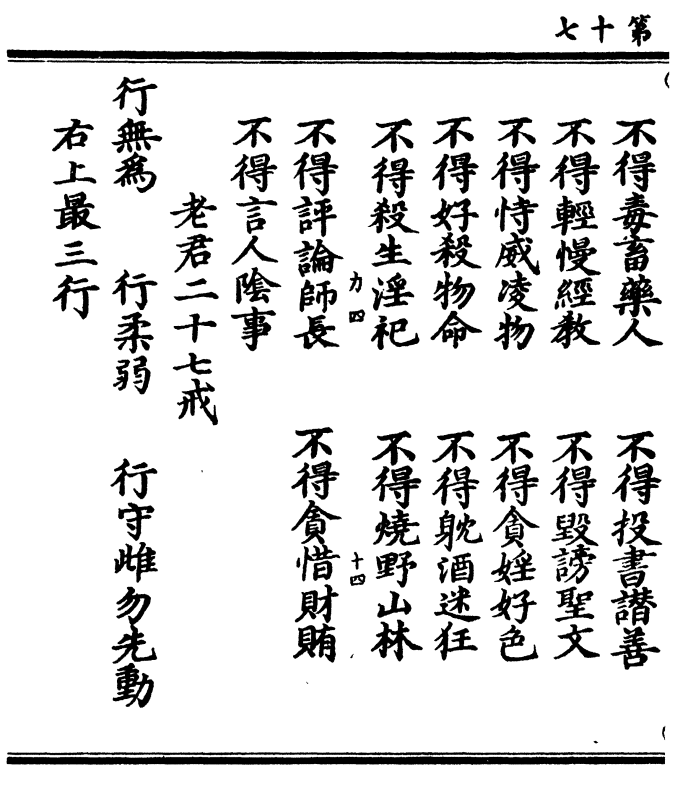 第十七
不得毒畜藥人　不得投書譖善
不得輕慢經教　不得毀謗聖文
不得恃威凌物　不得貪婬好色
不得好殺物命　不得躭酒迷狂
不得殺生淫祀　不得燒野山林
力四　十四
不得評論師長　不得貪惜財賄
不得言人陰事
老君二十七戒
行無為　行柔弱　行守雌勿先動
右上最三行